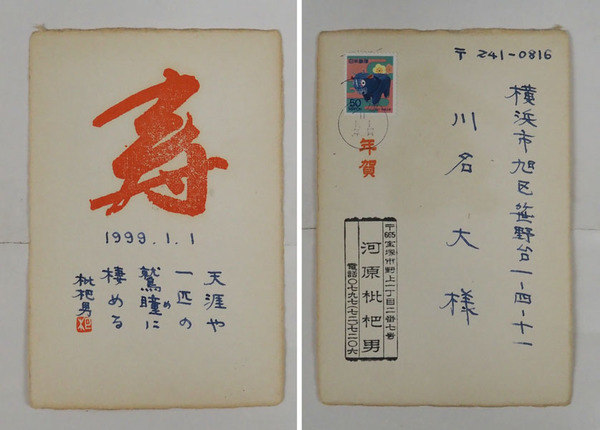 寿
1999.1.1
天涯や
一匹の
鷲瞳に
め
棲める
枇杷男
日本郵便
50
NIPPON
年賀
〒 241-0816
横浜市旭区笹野台一-四-十一
川名大様
宝塚市野上一丁目二番七号
河原枇杷男
電話〇七九七-七二-七二〇六